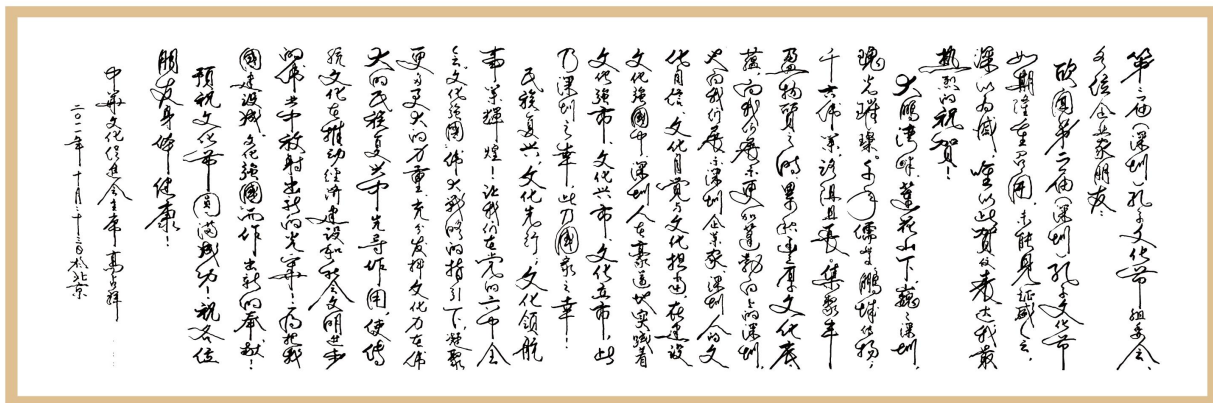 第二届(深圳)孔子文化节组委会、
各位企业家朋友:
欣闻第二届(深圳)孔子文化节
如期隆重召开,未能身临盛会,
深以为憾,唯以此贺仪表达我最
热烈的祝贺!
大鹏湾畔,莲花山下,巍巍深圳,
瑰光璀璨。千年儒学鹏城传扬,
千古伟业,路阻且长。集聚丰
盈物质之时,累积丰厚文化底
蕴,向我们展示更加蓬勃向上的深圳,
向我们展示深圳企业家、深圳人的文
化自信、文化自觉与文化担当。在建设
文化强國中深圳人在豪迈地实践着
文化强市、文化兴市、文化立市,此
乃深圳之幸,此乃國家之幸!
民族复兴,文化先行,文化领航
事业辉煌!让我们在党的六中全
会文化强國伟大战略的指引下,凝聚
更多更大的力量,充分发挥文化力在伟
大的民族复兴中先导作用,使传
统文化在推动经济建设和社会文明进步
的伟业中放射出新的光辉!为把我
國建设成文化强國而作出新的奉献!
预祝文化节圆满成功!祝各位
朋友身体健康!
中华文化促进会主席 高占祥
二〇一一年十月二十日於北京